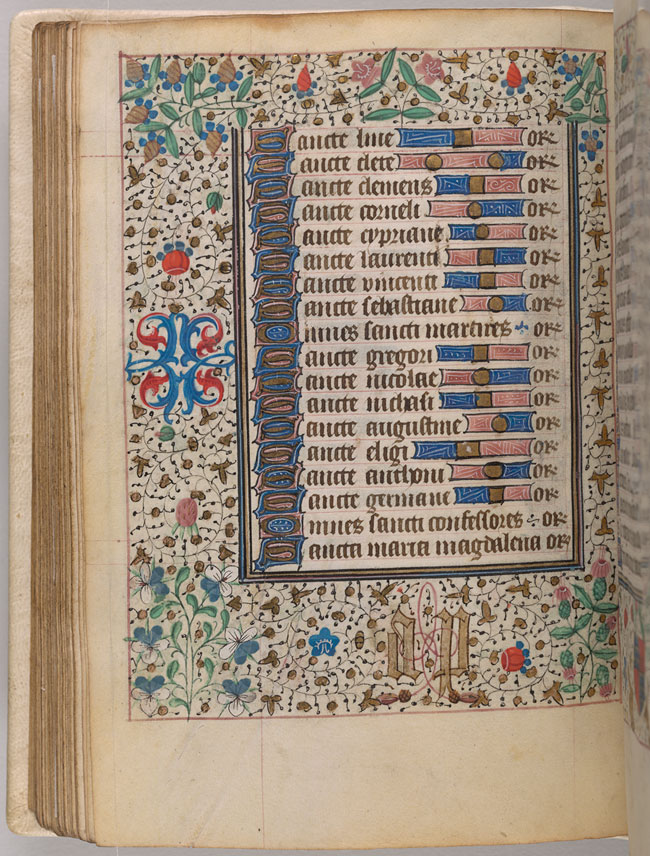 Sancte line or
Sancte clete or
Sancte clemens or
Sancte corneli or
Sancte cypriane or
Sancte laurenti or
Sancte vincenti or
Sancte sebastiane or
Omnes sancti martires or
Sancte gregori or
Sancte nicolae or
Sancte nichasi or
Sancte augustine or
Sancte eligi or
Sancte anthoni or
Sancte germane or
Omnes sancti confessores or
Sancta maria magdalena or